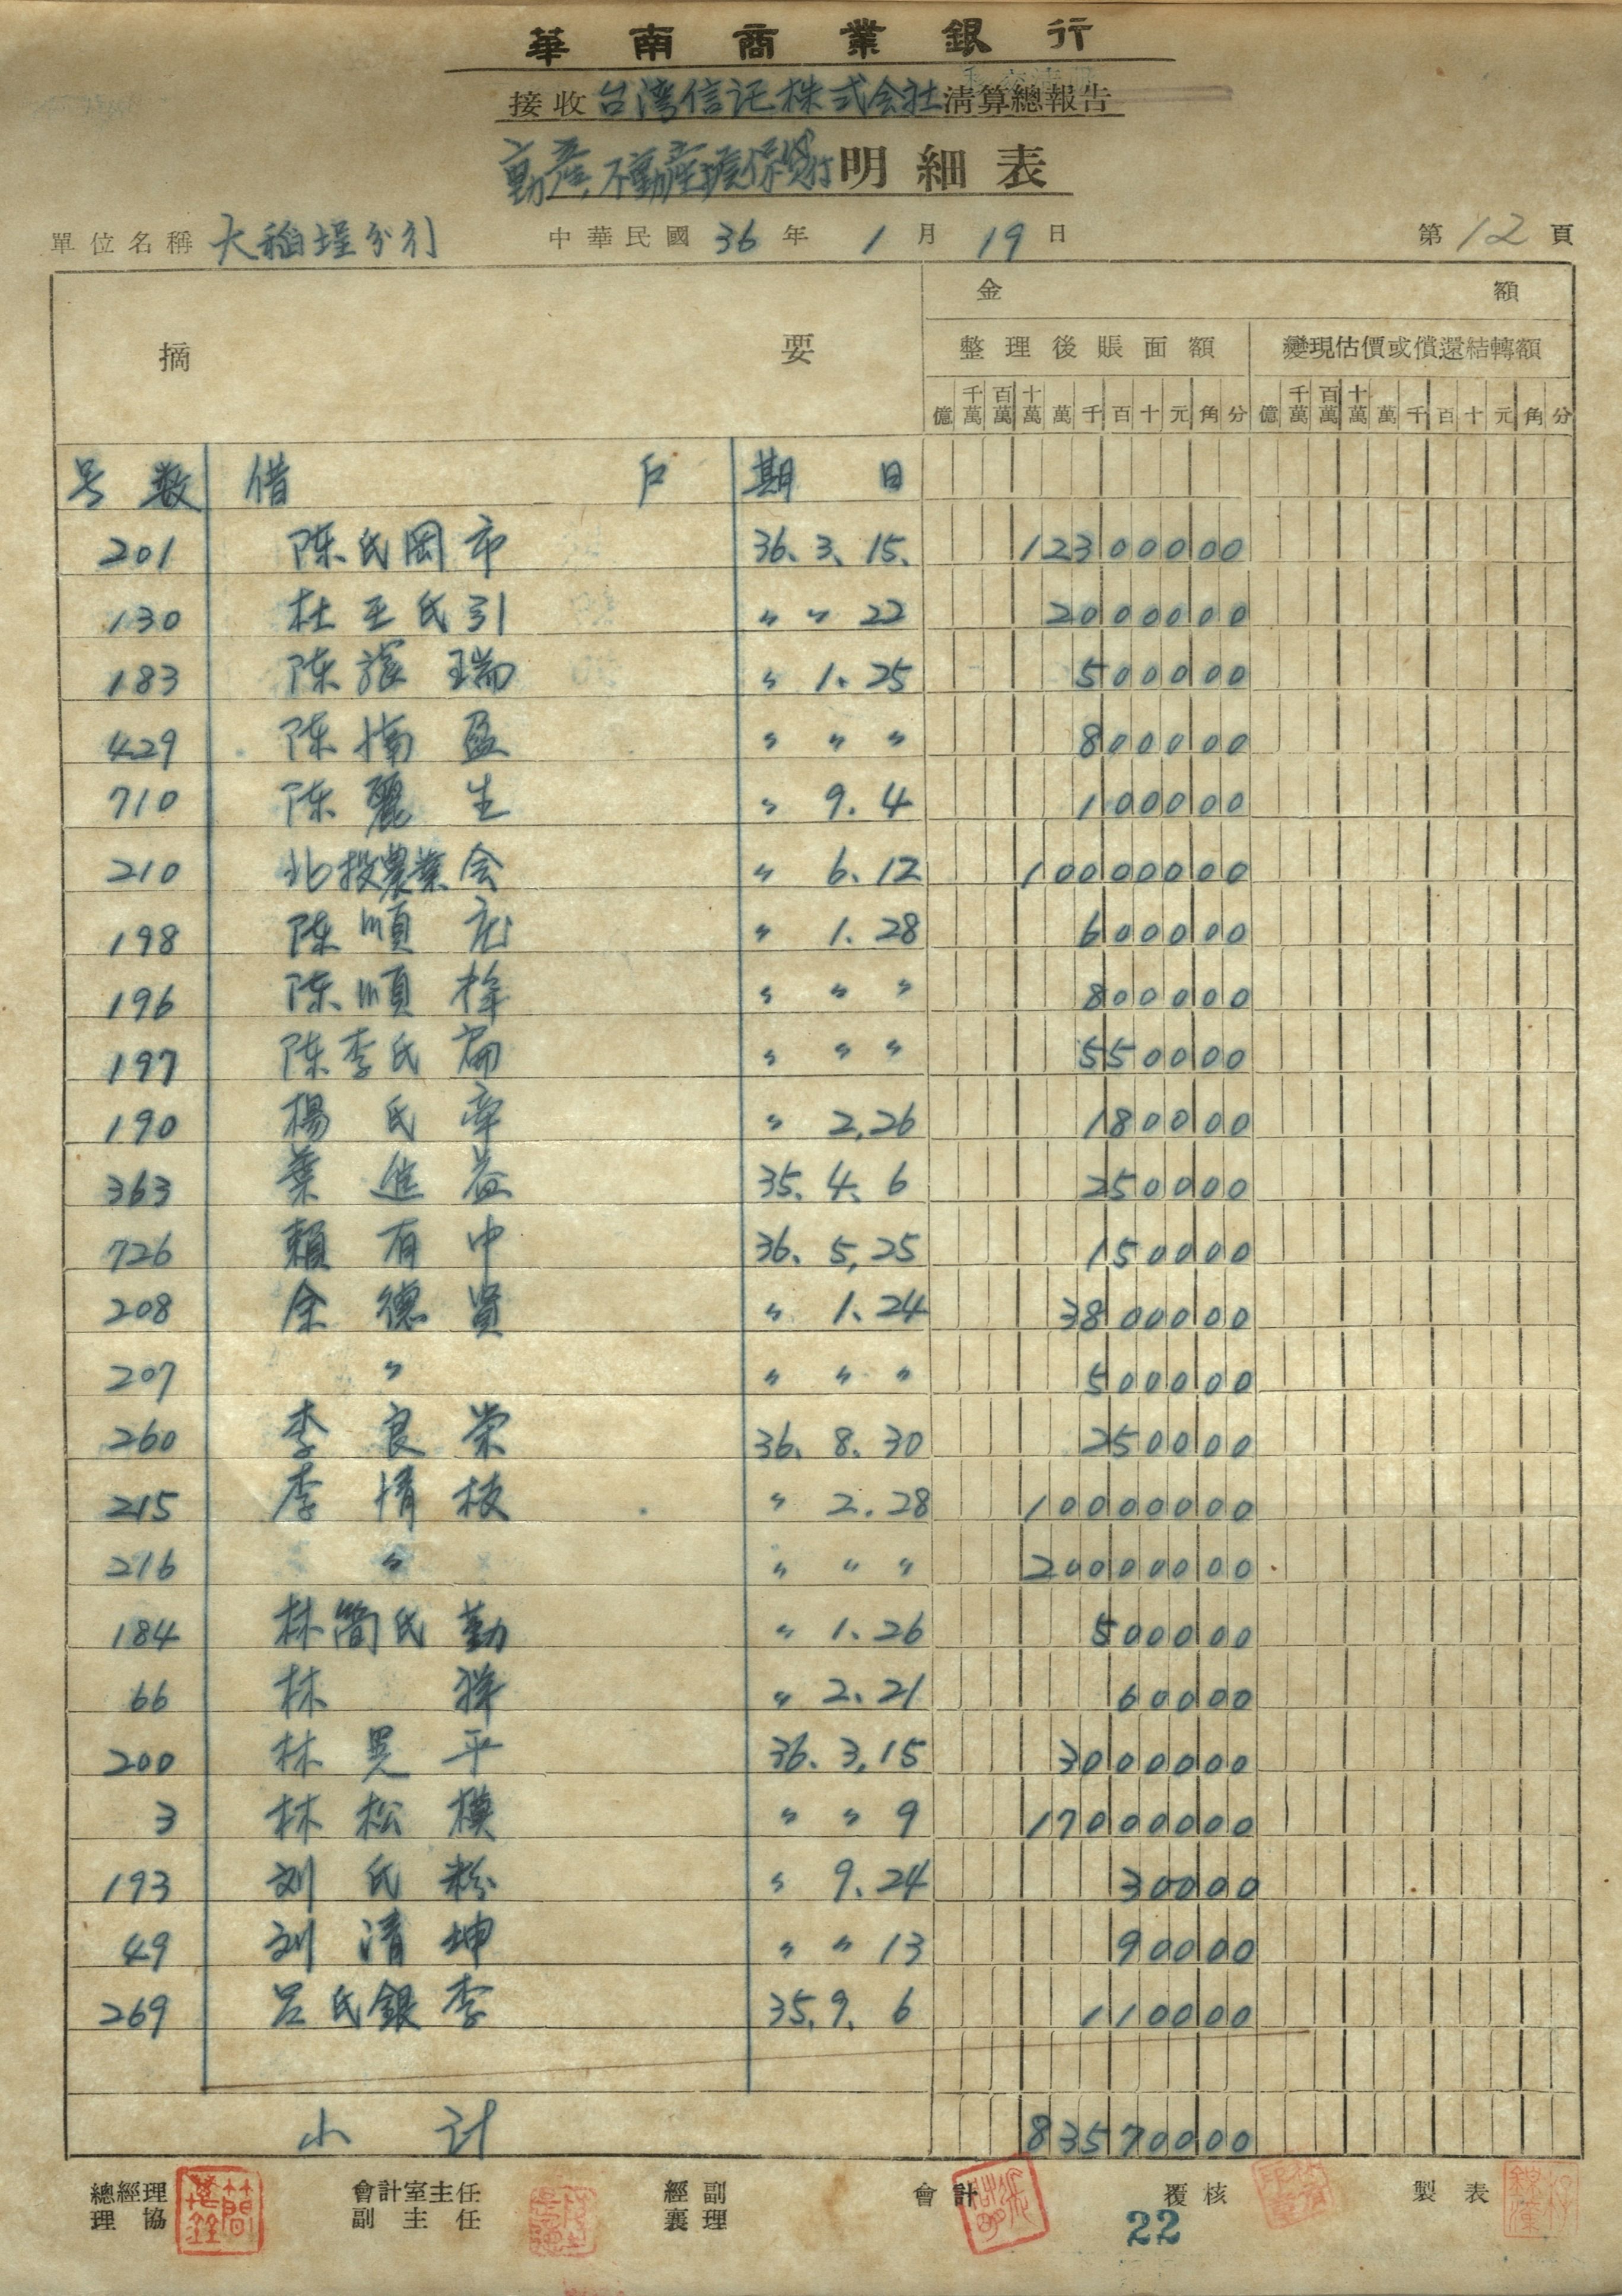 華南商業銀行
接收台湾信託株式会社清算總報告
動產、不動產擔保貸付明細表
單位名稱 大稻埕分行 中華民國 36 年 1 月 19 日 第 12 頁
摘 要 金 額
整理後賬面額 變現估價或償還結轉額
億 千萬 百萬 十萬 萬 千 百 十 元 角 分 億 千萬 百萬 十萬 萬 千 百 十 元 角 分
号数 借 戶 期 日
201 陈氏岡市 36. 3. 15. 12300000
130 杜王氏引 〃 〃 22 2000000
183 陈 瑞 〃 1. 25 500000
429 陈 盈 〃 〃 〃 800000
710 陈麗生 〃 9. 4 100000
210 北投農業会 〃 6. 12 10000000
198 陈順 〃 1. 28 600000
196 陈順 〃 〃 〃 800000
197 陈李氏 〃 〃 〃 550000
190 楊氏 〃 2. 26 180000
363 葉進益 35. 4. 6 250000
726 賴有中 36. 5. 25 150000
208 余德賢 〃 1. 24 3800000
207 〃 〃 〃 〃 500000
260 李良荣 36. 8. 30 250000
215 李情枝 〃 2. 28 10000000
216 〃 〃 〃 〃 20000000
184 林簡氏勤 〃 1. 26 500000
66 林 〃 2. 21 60000
200 林晃平 36. 3. 15 3000000
3 林松模 〃 〃 9 17000000
193 刘氏粉 〃 9. 24 30000
49 刘清坤 〃 〃 13 90000
269 呂氏銀李 35. 9. 6 110000
小計 83570000
總經理 會計室主任 經副 會計 覆核 製表
理協 副主任 襄理
22